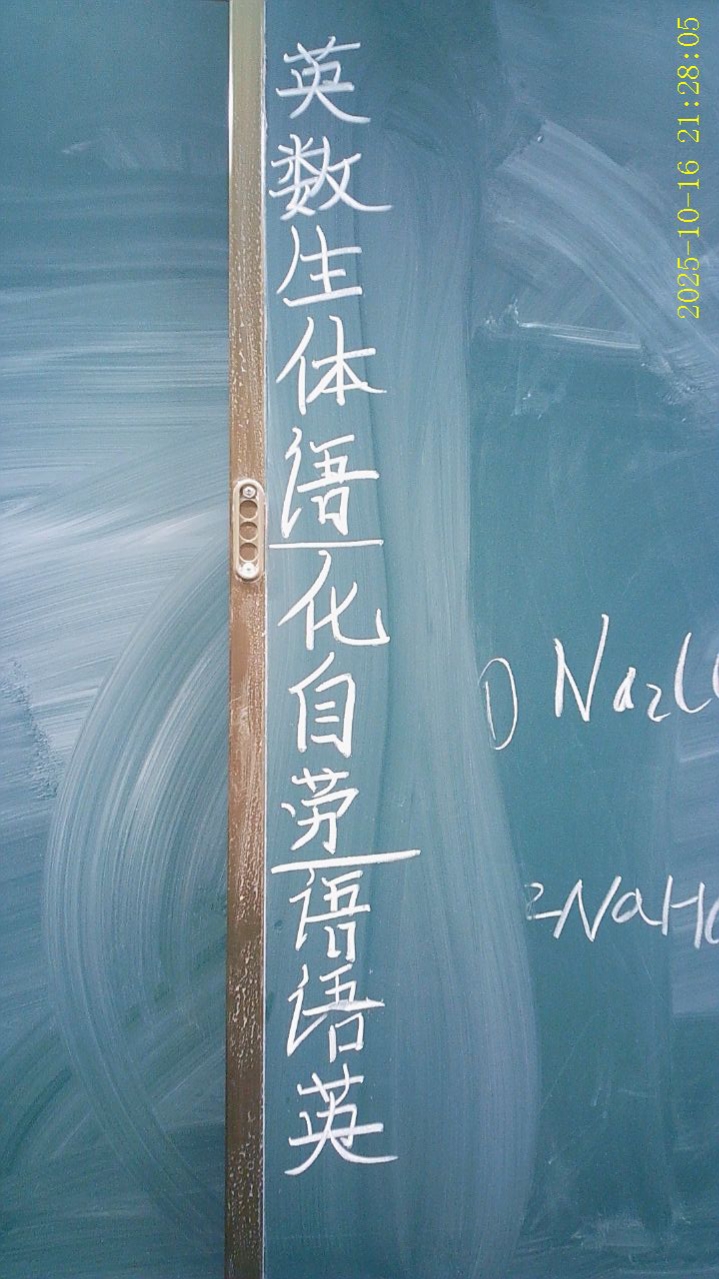 英
数
生
体
语
化
自
劳
语
语
英
① Na₂C
2NaHC
2025-10-16 21:28:05